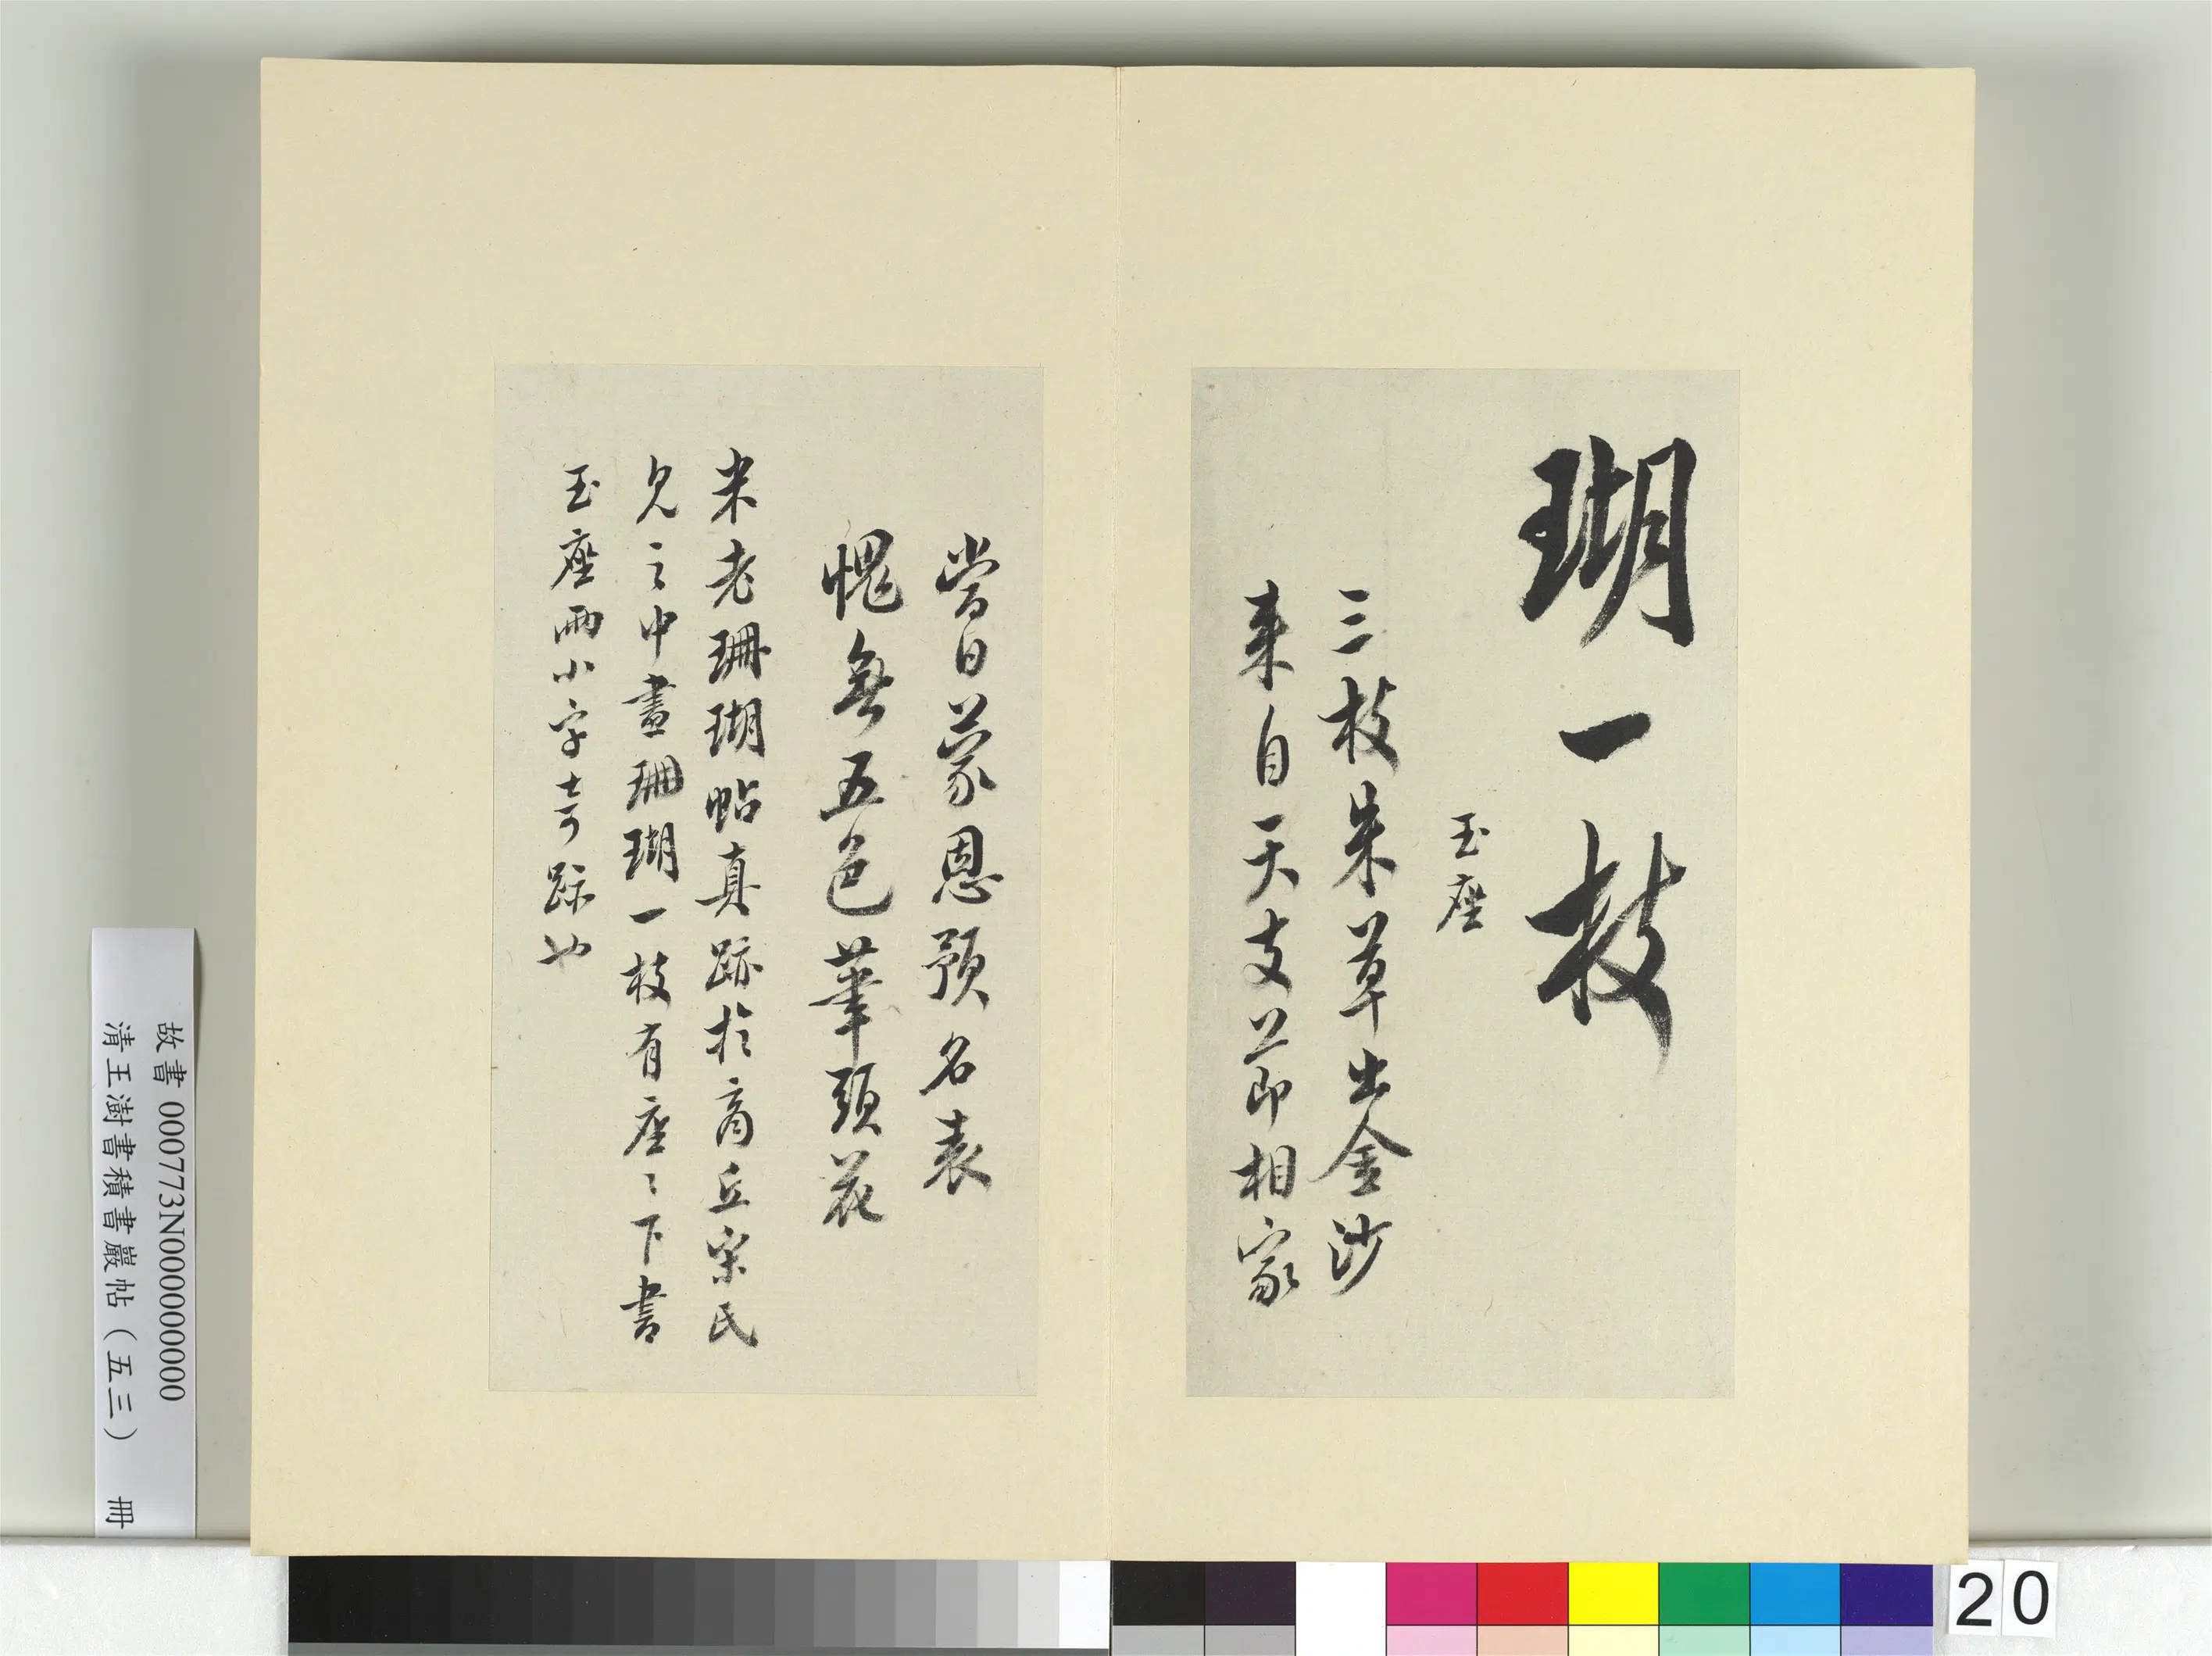 瑚一枝
玉座
三枝朱草出金沙
来自天支節相家
當日蒙恩預名表
愧無五色筆頭花
米老珊瑚帖真跡於商丘宋氏
見之中畫珊瑚一枝有座々下書
玉座兩小字奇跡也
故書 000773N000000000
清王澍書積書巖帖（五三） 冊
20